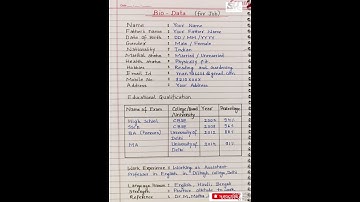 Bio - Data (for Job)
Name : Your Name
Father's Name : Your Father Name
Date of Birth : DD / MM / YYYY
Gender : Male / Female
Nationality : Indian
Marital Status : Married / Unmarried
Health Status : Physically Fit
Hobbies : Reading and Gardening
Email Id :
Mobile No. :
Address : Your Address
Educational Qualification
Name of Exam College/Board/University Year Percentage
High School CBSE
CBSE
BA (Honours) University of Delhi 2012
MA University of Delhi 2015
Work Experience : Working as Assistant
Professor in English in College, Delhi
Language Known : English, Hindi, Bengali
Strength : Positive attitude to
Reference : Dr. M.